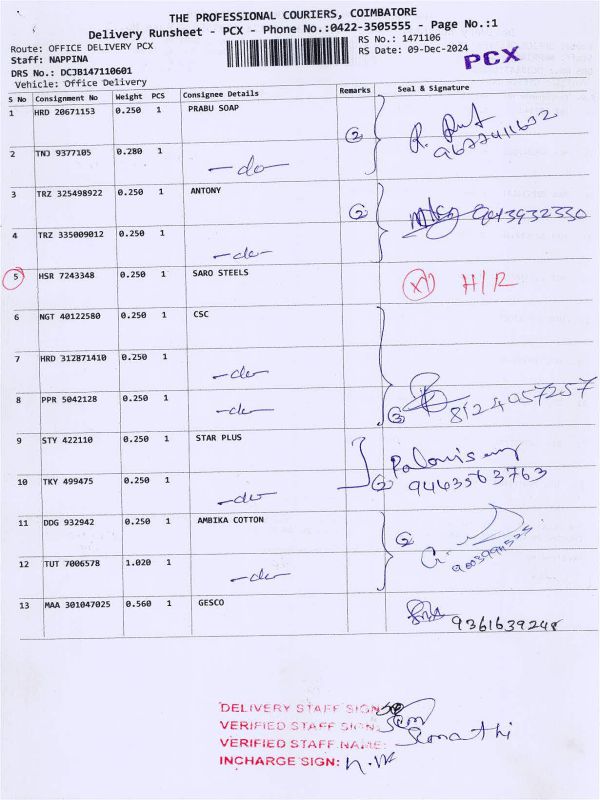 THE PROFESSIONAL COURIERS, COIMBATORE
Delivery Runsheet - PCX - Phone No.:0422-3505555 - Page No.:1
Route: OFFICE DELIVERY PCX RS No.: 1471106
Staff: NAPPINA RS Date: 09-Dec-2024 PCX
DRS No.: DCJB147110601
Vehicle: Office Delivery
S No Consignment No Weight PCS Consignee Details Remarks Seal & Signature
1 HRD 20671153 0.250 1 PRABU SOAP
2 TNJ 9377105 0.280 1 -do- 2
3 TRZ 325498922 0.250 1 ANTONY 2
4 TRZ 335009012 0.250 1 -do-
5 HSR 7243348 0.250 1 SARO STEELS H/R
6 NGT 40122580 0.250 1 CSC
7 HRD 312871410 0.250 1 -do-
8 PPR 5042128 0.250 1 -do- 3 8124057257
9 STY 422110 0.250 1 STAR PLUS
10 TKY 499475 0.250 1 -do- 2 9463563763
11 DDG 932942 0.250 1 AMBIKA COTTON 2
12 TUT 7006578 1.020 1 -do-
13 MAA 301047025 0.560 1 GESCO 9361639248
DELIVERY STAFF SIGN
VERIFIED STAFF SIGN:
VERIFIED STAFF NAME:
INCHARGE SIGN: